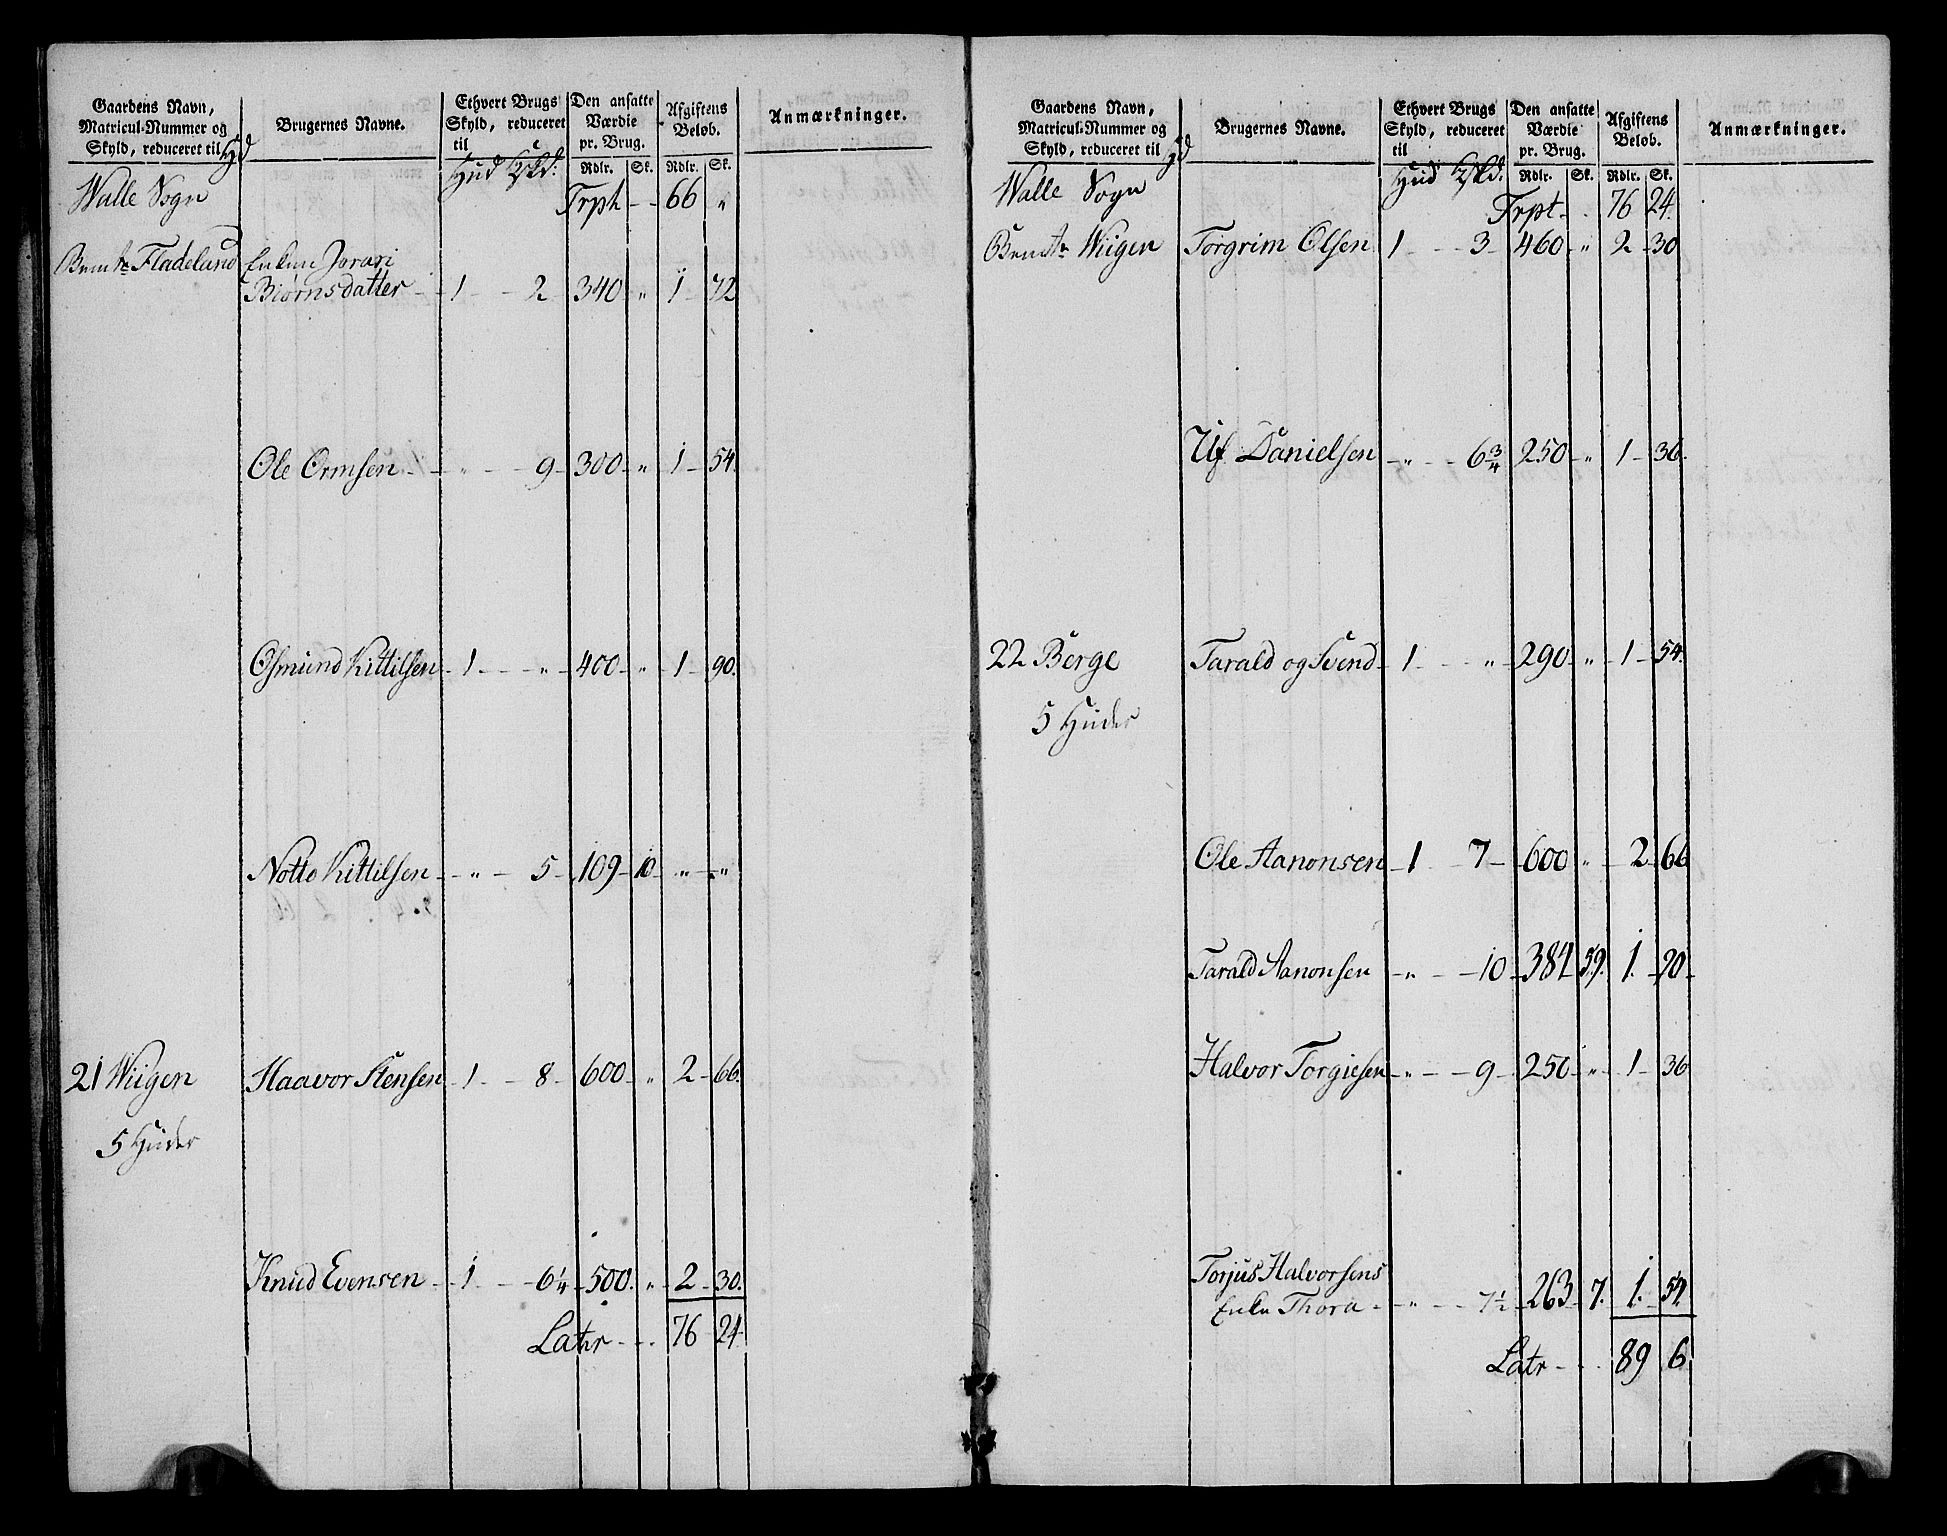 Gaardens Navn,
Matricul-Nummer og
Skyld, reduceret til Hd
Brugernes Navne.
Ethvert Brugs
Skyld, reduceret
til
Hud Skd:
Den ansatte
Værdie
pr. Brug.
Rdlr. Sk.
Afgiftens
Beløb.
Rdlr. Sk.
Anmærkninger.
Walle Sogn
Trpt - - 66 "
Fladelund Enken Jorari
Biørnsdatter - - 1 - - 2 - 340 - " - 1 - 72
Ole Ormsen - - " - - 9 - 300 - " - 1 - 54.
Osmund Kittilsen - 1 - - " - 400 - " - 1 - 90.
Notto Kittilsen - - " - 5 - 109 - 10 - " - "
21 Wiigen Haavor Stensen - 1 - - 8 - 600 - " - 2 - 66.
5 Huder
Knud Evensen - - 1 - - 6 1/4 - 500. " - 2 - 30.
Latr - - - 76 24
Gaardens Navn,
Matricul-Nummer og
Skyld, reduceret til Hd
Brugernes Navne.
Ethvert Brugs
Skyld, reduceret
til
Hud Skd.
Den ansatte
Værdie
pr. Brug.
Rdlr. Sk.
Afgiftens
Beløb.
Rdlr. Sk.
Anmærkninger.
Walle Sogn
Trpt - - 76 24.
Wiigen Torgrim Olsen 1 - - 3 - 460 - " - 2 - 30
Danielsen - " - - 6 3/4 250 - " - 1 - 36.
22 Berge Tarald og Svend - 1 - - " - 290 - " - 1 - 54.
5 Huder
Ole Aanonsen - 1 - 7 - 600 " - 2 - 66
Tarald Aanonsen - " - - 10 - 384 - 59. 1. - 90 -
Halvor Torgiesen - " - - 9 - 250 - " - 1 - 36
Torjus Halvorsens
Enke Thora - - " - - 7 1/2 - 263 - 7. 1. 54.
Latr - - - 89 6